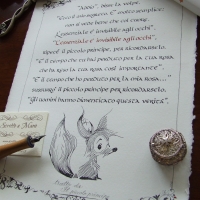 "Addio", disse la volpe.
"Ecco il mio segreto. È molto semplice:
non si vede bene che col cuore.
L'essenziale è invisibile agli occhi".
"L'essenziale è invisibile agli occhi",
ripeté il piccolo principe, per ricordarselo.
"È il tempo che tu hai perduto per la tua rosa
che ha reso la tua rosa così importante".
"È il tempo che ho perduto per la mia rosa..."
sussurrò il piccolo principe per ricordarselo.
"Gli uomini hanno dimenticato questa verità".
Scritto a Mano